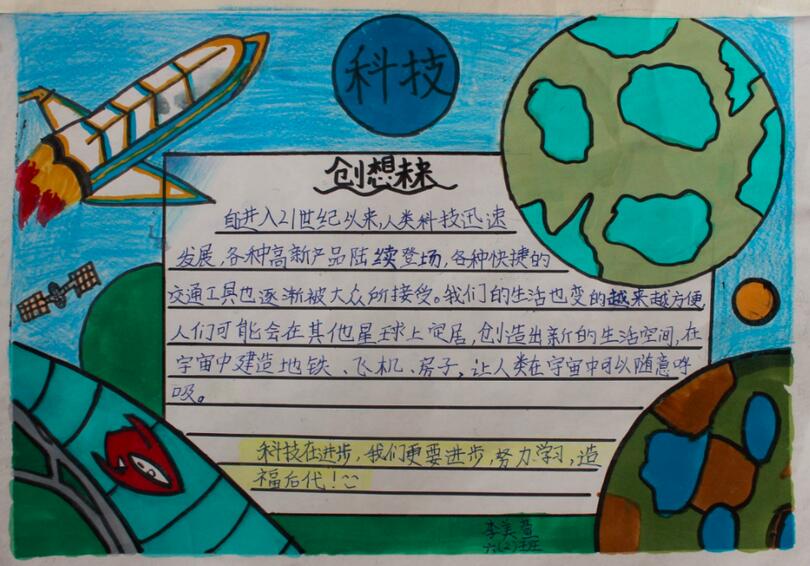 科技
创想未来
自进入21世纪以来,人类科技迅速
发展,各种高新产品陆续登场,各种快捷的
交通工具也逐渐被大众所接受。我们的生活也变的越来越方便
人们可能会在其他星球上定居,创造出新的生活空间,在
宇宙中建造地铁、飞机、房子,让人类在宇宙中可以随意呼
吸。
科技在进步,我们更要进步,努力学习,造
福后代!
李美萱
六(2)班